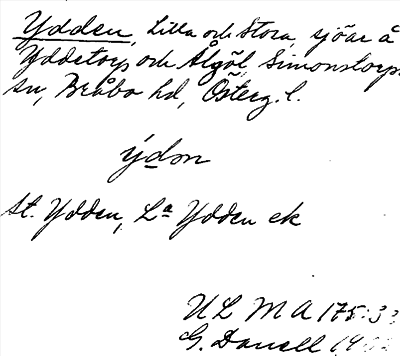 Ydden, Lilla och Stora, sjöar å
Yddetorp och Älgöl, Simonstorps
sn, Bråbo hd, Österg. l.
ýdon
St. Ydden, La Ydden ek
ULMA 175:33
G. Danell